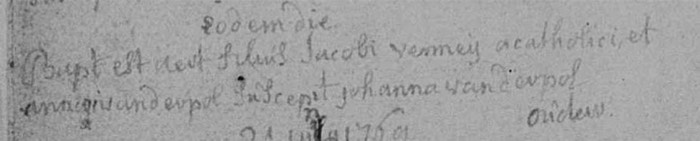 eodem die
Bapt est aert filius Jacobi vermeij acatholici, et
anna vanderpol suscept johanna vanderpol
oudew.
21 1769